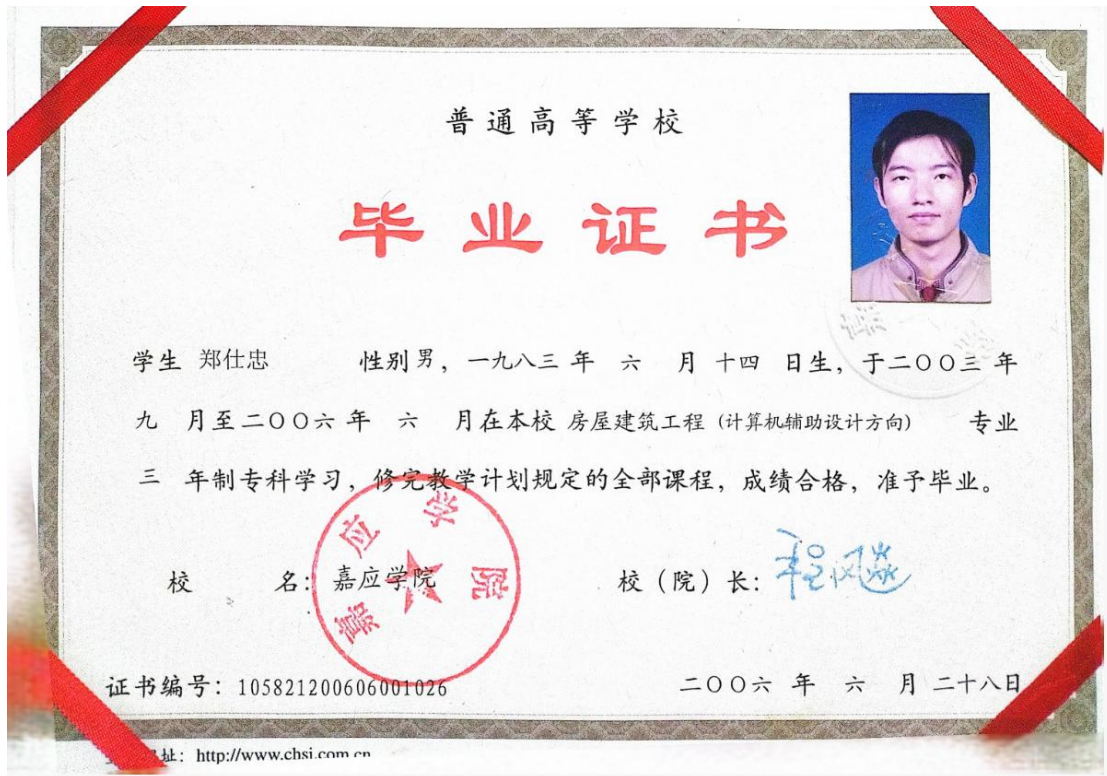 普通高等学校
毕业证书
学生 郑仕忠 性别 男，一九八三 年 六 月 十四 日生，于二〇〇三 年
九 月至二〇〇六 年 六 月在本校 房屋建筑工程（计算机辅助设计方向） 专业
三 年制专科学习，修完教学计划规定的全部课程，成绩合格，准予毕业。
校 名：嘉应学院 校（院）长：
嘉应学院
证书编号：105821200606001026 二〇〇六 年 六 月 二十八日
址：http://www.chsi.com.cn